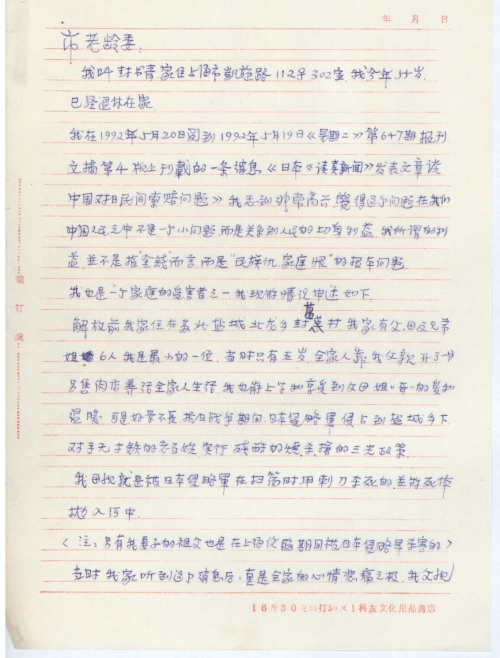 年 月 日
市老龄委：
我叫封书青家住上海市凯旋路112号302室，我今年55岁，
已经退休在家。
我在1992年5月20日阅到1992年5月19日《星期二》第647期报刊
文摘第4版上刊载的一条信息《日本《读卖新闻》发表文章谈
中国对日民间索赔问题》我感到非常高兴，觉得这个问题在我们
中国人民之中不是一个小问题，而是关系到人民的切身利益，我所谓的利
益，并不是指"金钱"而言，而是"民族仇、家庭恨"的报车问题
我也是一个家庭的受害者之一我现将情况阐述如下.
解放前我家住在苏北盐城北龙乡封葛村我家有父、母及兄弟
姐 6人我是最小的一位，当时只有五岁全家人靠我父亲开了一片
另售肉店养活全家人生活，我也能上学和享受到父母姐"哥"的爱和
温暖，可是好景不长，抗日战争期间，日本侵略军侵占到盐城乡下
对手无寸铁的老百姓实行残酷的烧杀抢的三光政策.
我母亲就是被日本侵略军在扫荡时用刺刀杀死的，并将死体
抛入河中.
（注：另有我妻子的祖父也是在上海沦陷期间被日本侵略军杀害的）
当时我家听到这个消息后，真是全家的心情悲痛之极，我父亲
装 订 线
16开30克白打50×1科友文化用品商店